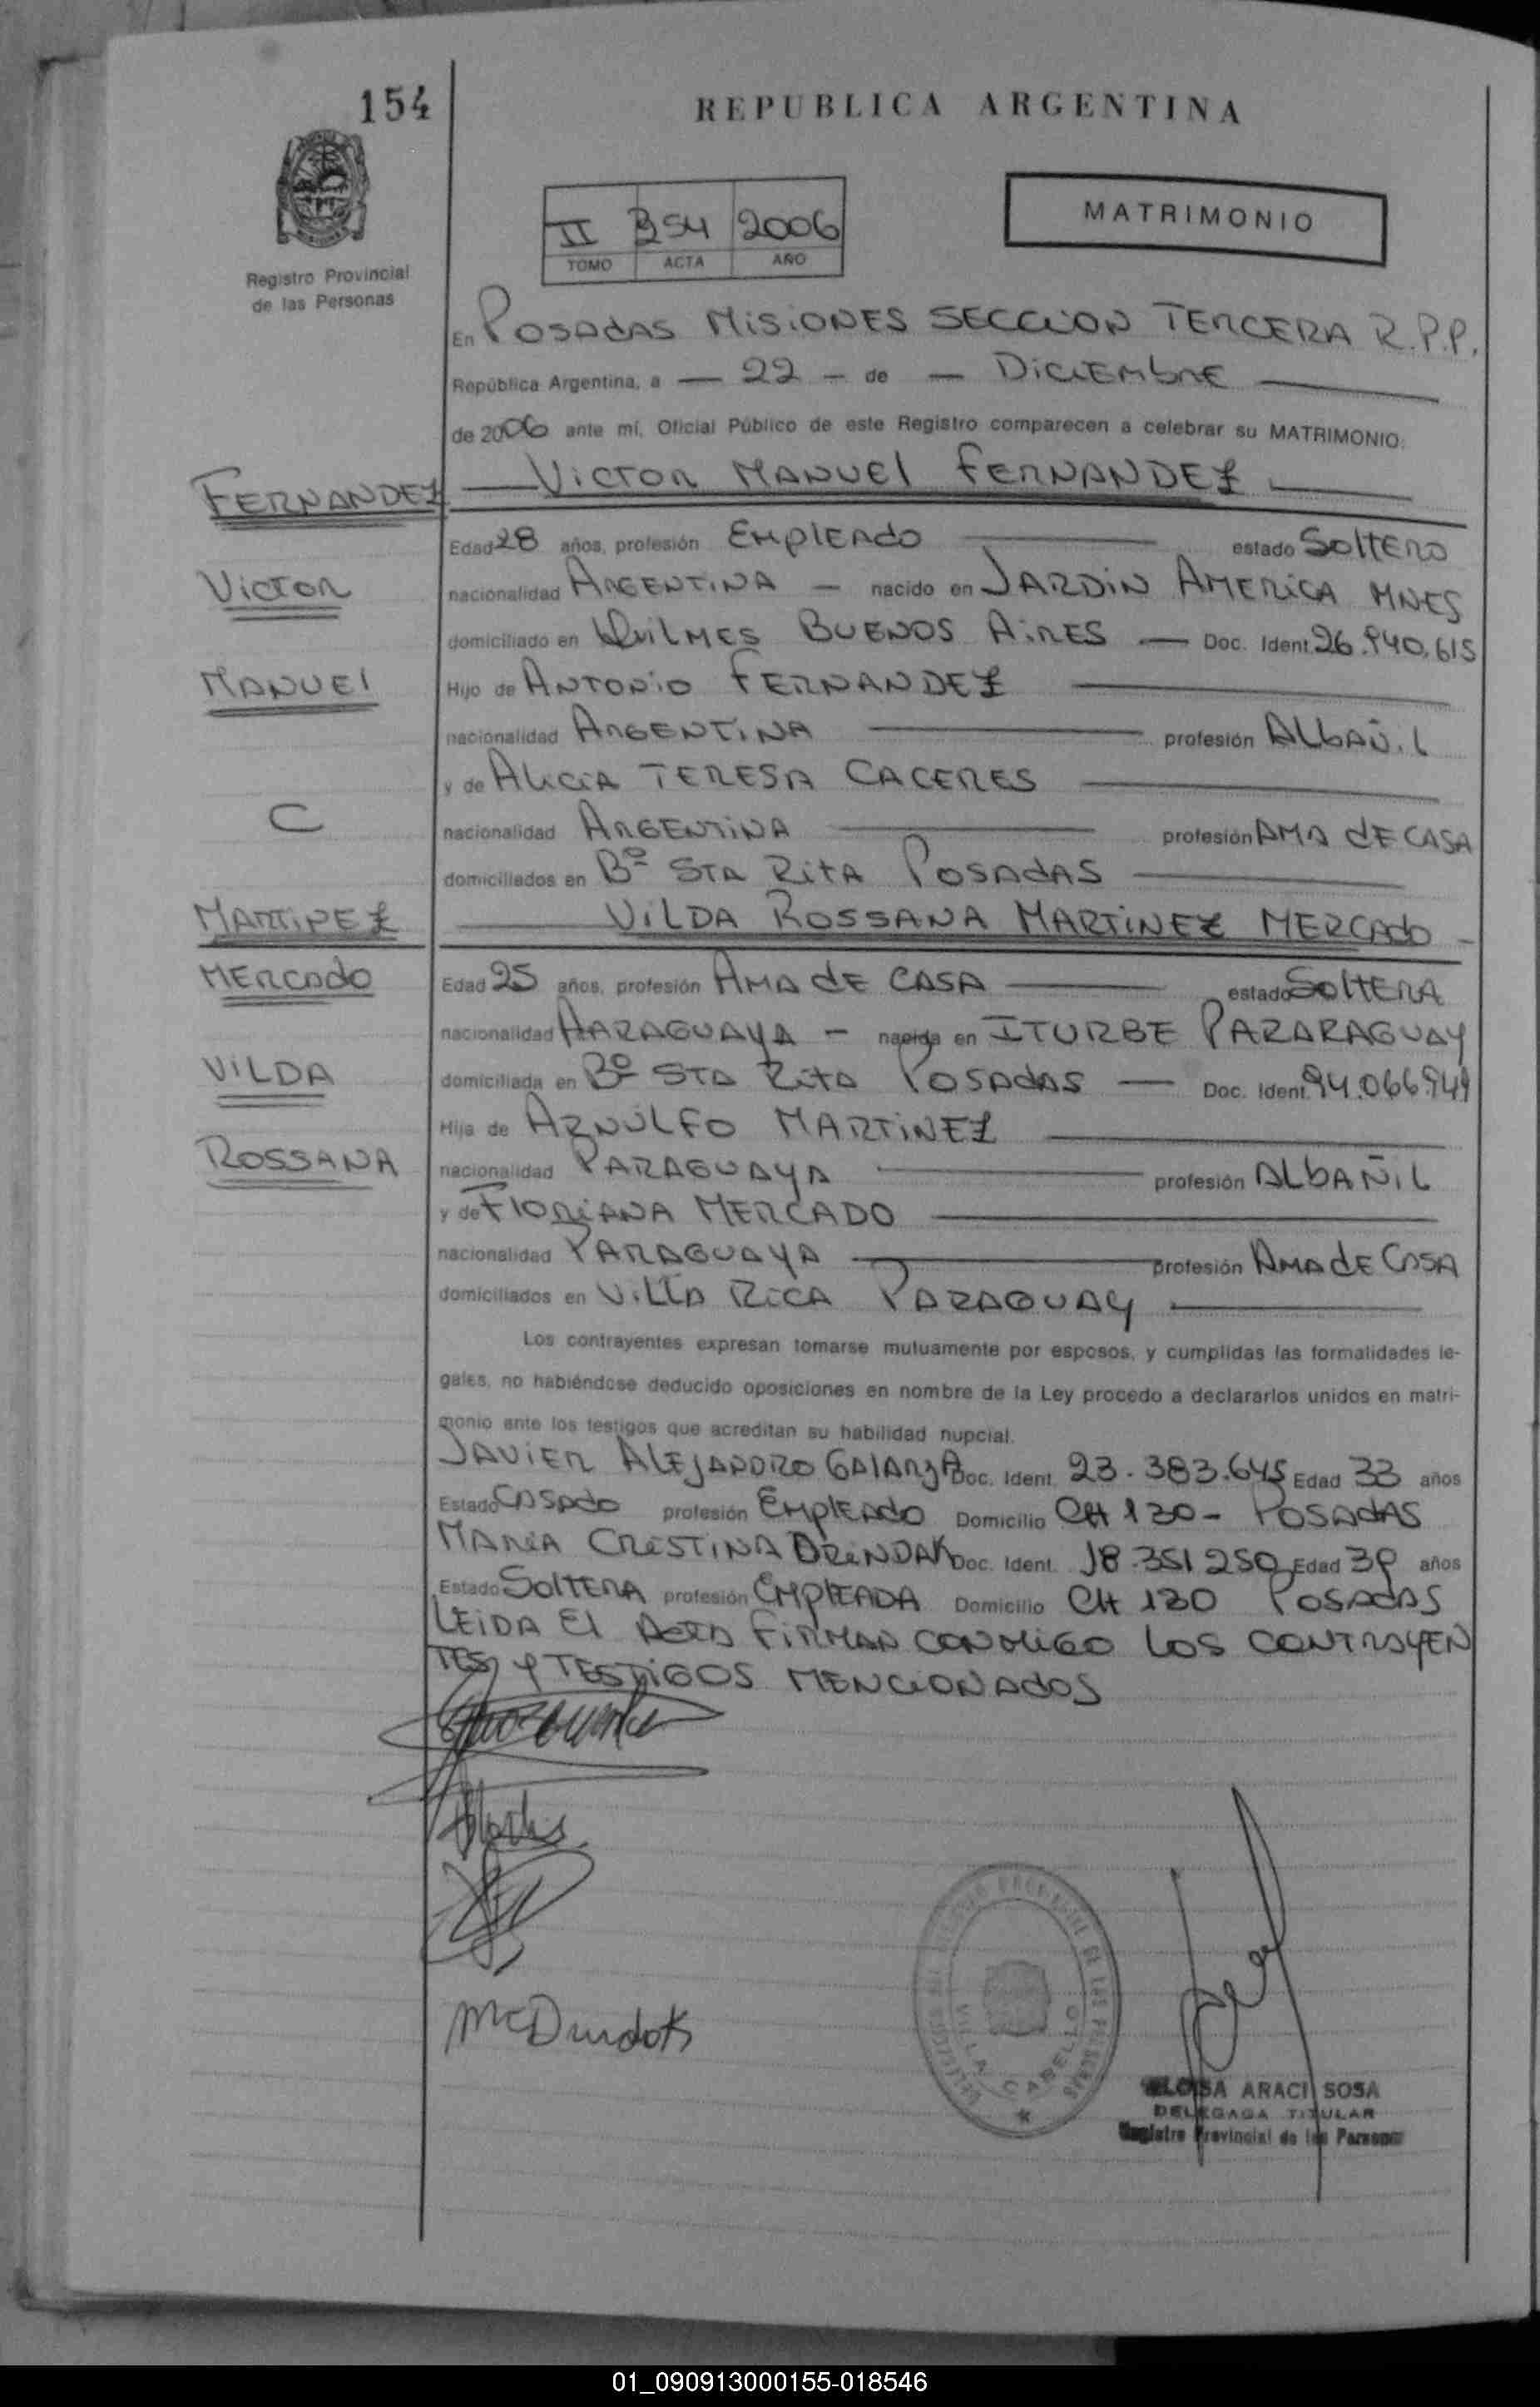 154
REPUBLICA ARGENTINA
Registro Provincial
de las Personas
II 354 2006
TOMO ACTA AÑO
MATRIMONIO
En POSADAS MISIONES SECCION TERCERA R.P.P.
República Argentina, a — 22 — de — DICIEMBRE
de 2006 ante mí, Oficial Público de este Registro comparecen a celebrar su MATRIMONIO:
FERNANDEZ
VICTOR MANUEL FERNANDEZ
Edad 28 años, profesión EMPLEADO estado SOLTERO
VICTOR
nacionalidad ARGENTINA — nacido en JARDIN AMERICA MNES
domiciliado en QUILMES BUENOS AIRES — Doc. Ident. 26.940.615
MANUEL
Hijo de ANTONIO FERNANDEZ
nacionalidad ARGENTINA profesión ALBAÑIL
y de ALICIA TERESA CACERES
C
nacionalidad ARGENTINA profesión AMA DE CASA
domiciliados en Bº STA RITA POSADAS
MARTINEZ
VILDA ROSSANA MARTINEZ MERCADO —
MERCADO
Edad 25 años, profesión AMA DE CASA estado SOLTERA
nacionalidad PARAGUAYA — nacida en ITURBE PARARAGUAY
VILDA
domiciliada en Bº STA RITA POSADAS — Doc. Ident. 94.066.949
Hija de ARNULFO MARTINEZ
ROSSANA
nacionalidad PARAGUAYA profesión ALBAÑIL
y de FLORIANA MERCADO
nacionalidad PARAGUAYA profesión AMA DE CASA
domiciliados en VILLA RICA PARAGUAY
Los contrayentes expresan tomarse mutuamente por esposos, y cumplidas las formalidades le-
gales, no habiéndose deducido oposiciones en nombre de la Ley procedo a declararlos unidos en matri-
monio ante los testigos que acreditan su habilidad nupcial.
JAVIER ALEJANDRO GALARZA Doc. Ident. 23.383.645 Edad 33 años
Estado CASADO profesión EMPLEADO Domicilio CH 130 - POSADAS
MARIA CRISTINA DRINDAK Doc. Ident. 18.351250 Edad 39 años
Estado SOLTERA profesión EMPLEADA Domicilio CH 130 POSADAS
LEIDA El ACTA FIRMAN CONMIGO LOS CONTRAYEN
TES Y TESTIGOS MENCIONADOS
VILLA CABELLO
ARACI SOSA
DELEGADA TITULAR
Registro Provincial de las Personas
01_090913000155-018546